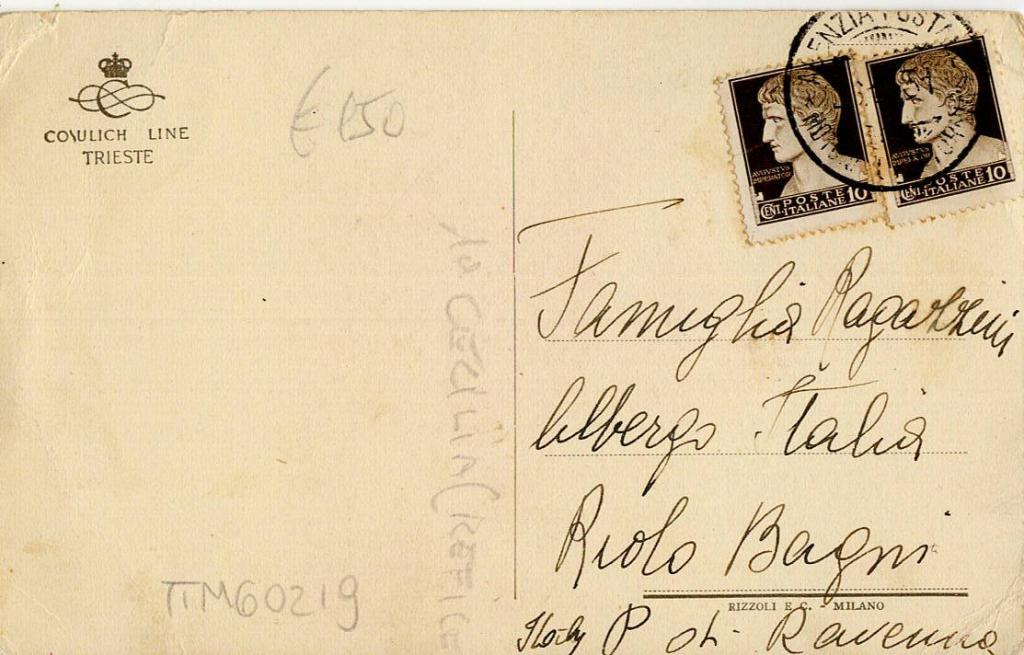 COSULICH LINE
TRIESTE
€ 150
TTM60219
AGENZIA POSTA
AVGVSTVS
IMPERATOR
POSTE
CENT. ITALIANE 10
AVGVSTVS
IMPERATOR
POSTE
CENT. ITALIANE 10
Famiglia Ragazzini
Albergo Italia
Riolo Bagni
RIZZOLI E C. - MILANO
Italy P di Ravenna